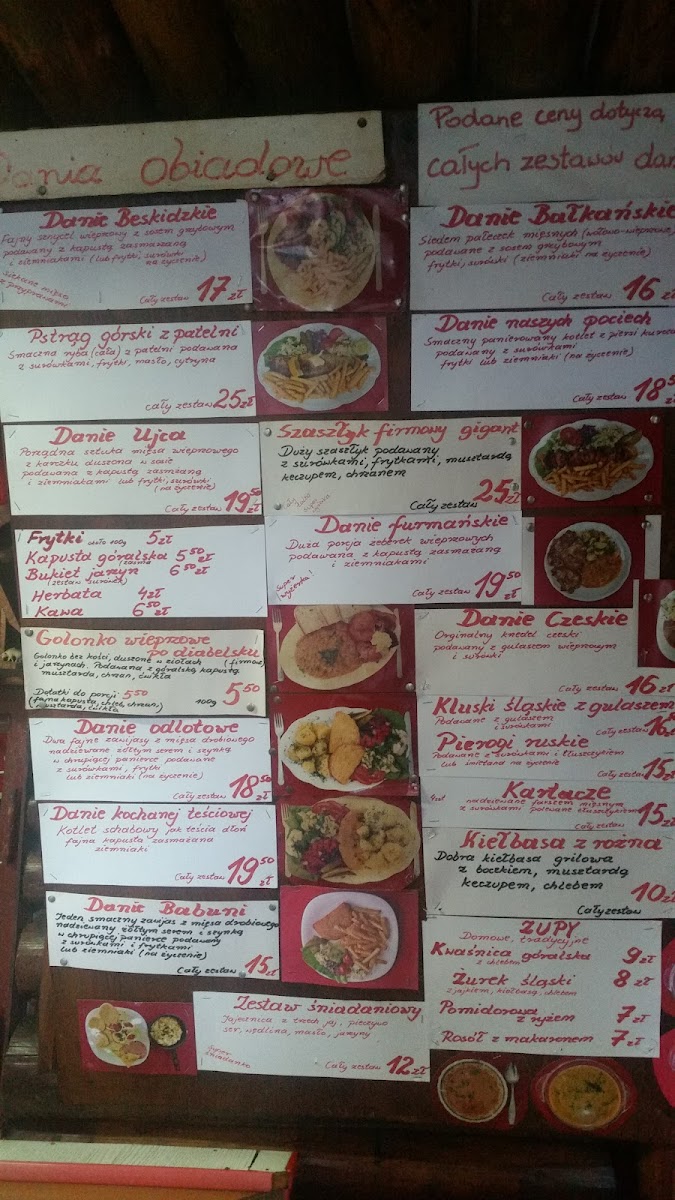 Dania obiadowe
Podane ceny dotyczą
całych zestawów dań
Danie Beskidzkie
Fajny sznycel wieprzowy z sosem grzybowym
podawany z kapustą zasmażaną
i ziemniakami (lub frytki, surówki
na życzenie)
siekane mięso
z przyprawami
Cały zestaw 17 zł
Danie Bałkańskie
Siedem pałeczek mięsnych (wołowo-wieprzowe)
podawane z sosem grzybowym
frytki, surówki (ziemniaki na życzenie)
Cały zestaw 16 zł
Pstrąg górski z patelni
Smaczna ryba (cała) z patelni podawana
z surówkami, frytki, masło, cytryna
Cały zestaw 25 zł
Danie naszych pociech
Smaczny panierowany kotlet z piersi kurcza
podawany z surówkami
frytki lub ziemniaki (na życzenie)
Cały zestaw 18 50
Danie Ujca
Porządna sztuka mięsa wieprzowego
z karczku duszona w sosie
podawana z kapustą zasmażaną
i ziemniakami lub frytki, surówki
(na życzenie)
Cały zestaw 19 50 zł
Szaszłyk firmowy gigant
Duży szaszłyk podawany
z surówkami, frytkami, musztardą
keczupem, chrzanem
Cały zestaw 25 zł
Frytki 100g 5 zł
Kapusta góralska 5 50 zł
Bukiet jarzyn 6 50 zł
(zestaw surówek)
Herbata 4 zł
Kawa 6 50 zł
Danie furmańskie
Duża porcja żeberek wieprzowych
podawana z kapustą zasmażaną
i ziemniakami
Super
wyżerka!
Cały zestaw 19 50 zł
Golonko wieprzowe
po diabelsku
Golonko bez kości, duszone w ziołach (firmowe)
i jarzynach. Podawana z góralską kapustą
musztarda, chrzan, ćwikła
Dotatki do porcji 5 50
(fajna kapusta, chleb, chrzan,
musztarda, ćwikła
100g 5 50
Danie Czeskie
Orginalny knedel czeski
podawany z gulaszem wieprzowym
i surówki
Cały zestaw 16 zł
Kluski śląskie z gulaszem
Podawane z gulaszem
i surówkami
Cały zestaw 16 50
Danie odlotowe
Dwa fajne zawijasy z mięsa drobiowego
nadziewane żółtym serem i szynką
w chrupiącej panierce podawane
z surówkami, frytki
lub ziemniaki (na życzenie)
Cały zestaw 18 50 zł
Pierogi ruskie
Podawane z surówkami i tłuszczykiem
lub śmietaną na życzenie
Cały zestaw 15 zł
Kartacze
4szt nadziewane farszem mięsnym
z surówkami polewane tłuszczykiem
Cały zestaw 15 zł
Danie kochanej teściowej
Kotlet schabowy jak teścia dłoń
fajna kapusta zasmażana
ziemniaki
Cały zestaw 19 50 zł
Kiełbasa z rożna
Dobra kiełbasa grilowa
z boczkiem, musztardą
keczupem, chlebem
Cały zestaw 10 zł
Danie Babuni
Jeden smaczny zawijas z mięsa drobiowego
nadziewany żółtym serem i szynką
w chrupiącej panierce podawany
z surówkami i frytkami
lub ziemniaki (na życzenie)
Cały zestaw 15 zł
ZUPY
Domowe, tradycyjne
Kwaśnica góralska 9 zł
z chlebem
Żurek śląski 8 zł
z jajkiem, kiełbasą, chlebem
Pomidorowa 7 zł
z ryżem
Rosół z makaronem 7 zł
Zestaw śniadaniowy
Jajecznica z trzech jaj, pieczywo
ser, wędlina, masło, jarzyny
Super
śniadanko
Cały zestaw 12 zł